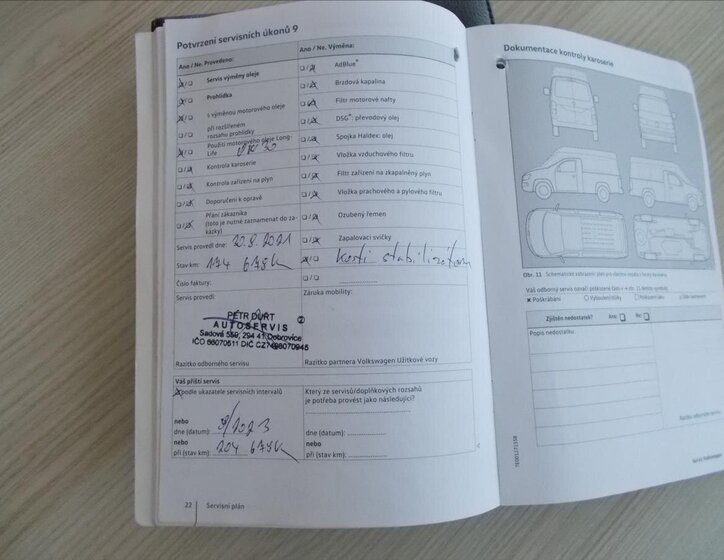 Potvrzení servisních úkonů 9
Ano / Ne. Provedeno:
Servis výměny oleje
Prohlídka
s výměnou motorového oleje
při rozšířeném
rozsahu prohlídky
Použití motorového oleje Long-
Life
Kontrola karoserie
Kontrola zařízení na plyn
Doporučení k opravě
Přání zákazníka
(toto je nutné zaznamenat do za-
kázky)
Servis provedl dne: 20.9.2021
Stav km: 174 678 k
Číslo faktury:
Servis provedl:
PETR DURT
AUTOSERVIS
Sadová 589, 294 41 Dobrovice
Razítko odborného servisu
Ano / Ne. Výměna:
AdBlue®
Brzdová kapalina
Filtr motorové nafty
DSG®: převodový olej
Spojka Haldex: olej
Vložka vzduchového filtru
Filtr zařízení na zkapalněný plyn
Vložka prachového a pylového filtru
Ozubený řemen
Zapalovací svíčky
stabilizátoru
Záruka mobility:
Razítko partnera Volkswagen Užitkové vozy
Váš příští servis
x podle ukazatele servisních intervalů
nebo
dne (datum): 9/2023
nebo
při (stav km): 204 678k
Který ze servisů/doplňkových rozsahů
je potřeba provést jako následující?
nebo
dne (datum):
nebo
při (stav km):
22
Servisní plán
Dokumentace kontroly karoserie
Obr. 11
Váš odborný servis označí poškozené části
Poškrábání
Zjištěn nedostatek? Ano: Ne:
Popis nedostatku: